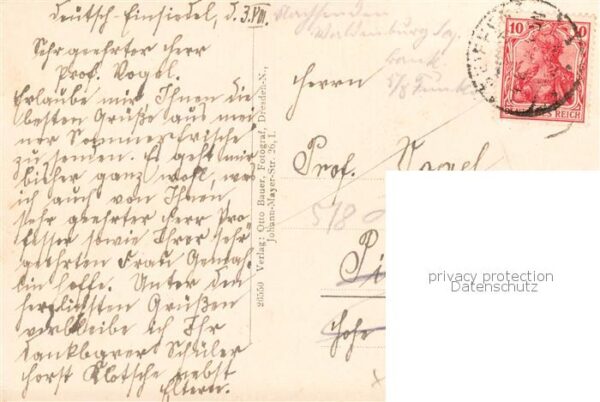 Deutsch-Einsiedel, d. 3. VIII.
Sehr geehrter Herr
Prof. Vogel.
Erlaube mir Ihnen die
besten Grüße aus mei
ner Sommerfrische
zu senden. Es geht mir
bisher ganz wohl, was
ich auch von Ihnen
sehr geehrter Herr Pro
fessor sowie Ihrer sehr
geehrten Frau Gemah
lin hoffe. Unter den
herzlichsten Grüßen
verbleibe ich Ihr
dankbarer Schüler
Horst Klotsche nebst
Eltern.
26550 Verlag: Otto Bauer, Fotograf, Dresden-N.,
Johann-Meyer-Str. 26, I.
Nachsenden
Waldenburg
5/8
Herrn
Prof. Vogel
5/8
Pi
Hohe
10 10
REICH
privacy protection
Datenschutz